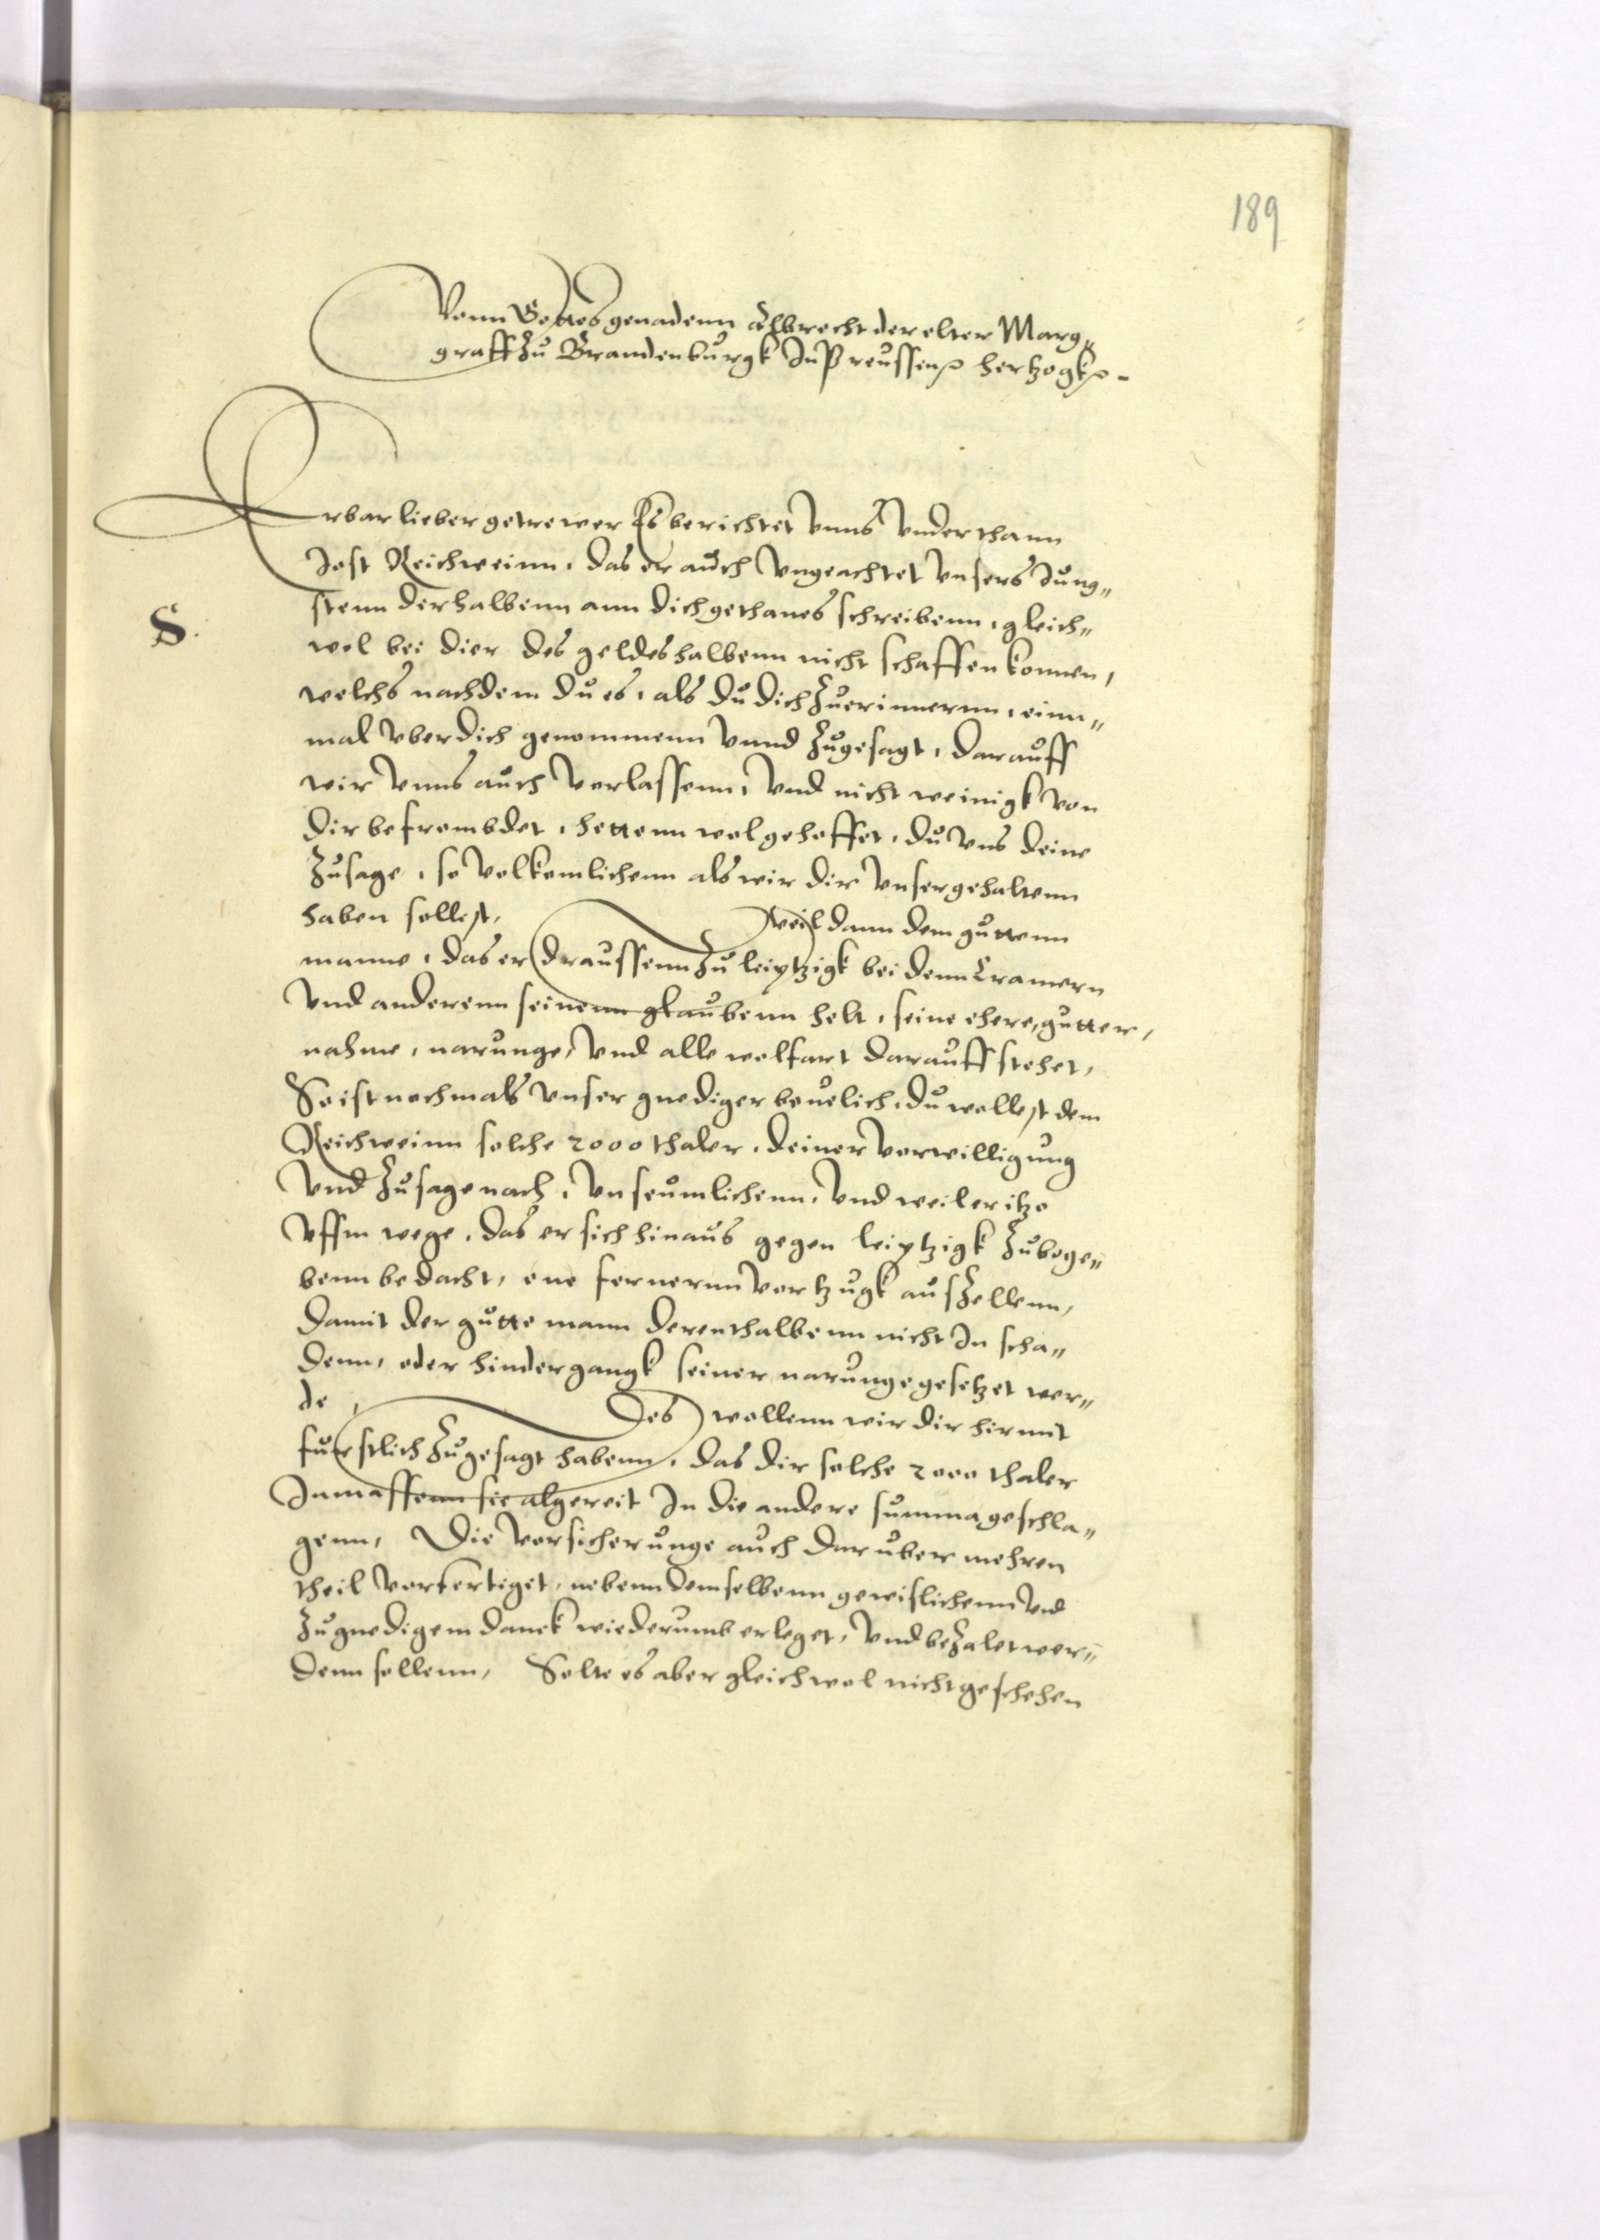 189
Vonn Gottes genadenn Albrecht der elter Marg„
graff zu Brandenburgk In Preussenn hertzogk
Erbar lieber getrewer Es berichtet vnns vnderthann
Jost Reichweinn, das er auch vngeachtet vnsers Jung„
stenn derhalbenn ann dich gethanes schreibenn, gleich„
S.
wol bei dier des geldes halbenn nicht schaffen konnen,
welchs nachdem du es, als du dich zuerinnernn, einn„
mal vber dich genommenn vnnd zugesagt, darauff
wir vnns auch verlassenn, vnd nicht weinigk von
dir befrembdet, hettenn wol gehoffet, du vns deine
Zusage, so volkomlichenn als wir dir vnser gehaltenn
haben sollest, Weil dann dem guttenn
manne, das er draussenn zu leiptzigk bei denn Cramern
vnd anderenn seinenn glaubenn helt, seine ehere, gutter,
nahme, narunge, vnd alle wolfart darauff stehet,
So ist nochmals vnser gnediger beuelich, du wollest dem
Reichweinn solche 2000 thaler, deiner verwilligung
vnd zusage nach, vnseumlichenn, vnd weil er itzo
vffm wege, das er sich hinaus gegen leiptzigk zubege„
benn bedacht, one fernernn vertzugk auszellenn,
damit der gutte mann derenthalbenn nicht In scha„
denn, oder hindergangk seiner narunge gesetzet wer„
de, Des wollenn wir dir hirmit
furstlich zugesagt habenn, das dir solche 2000 thaler
Inmassenn sie algereit In die andere summa geschla„
genn, Die versicherunge auch daruber mehren
theil verfertiget, nebenn demselbenn gewislichenn vnd
zu gnedigem danck wiederumb erleget, vnd bezalet wer„
denn sollenn, Solte es aber gleichwol nicht geschehen